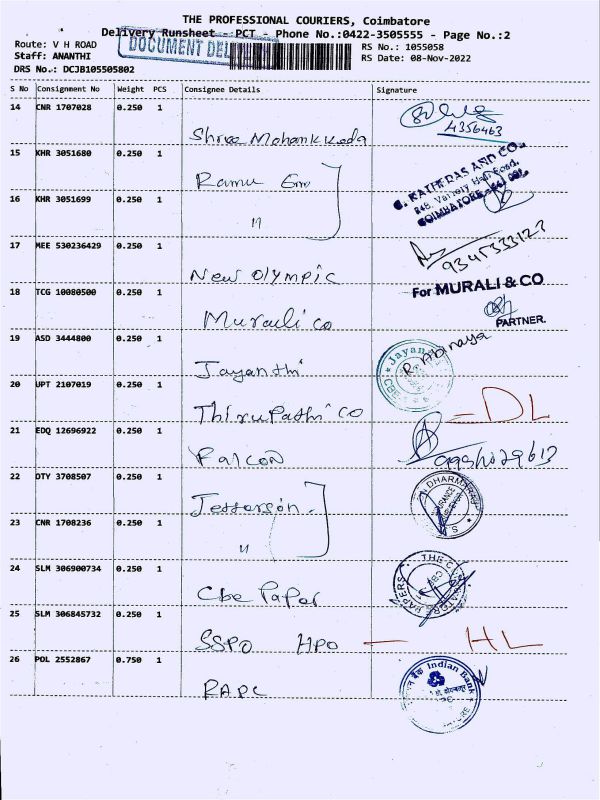 THE PROFESSIONAL COURIERS, Coimbatore
Delivery Runsheet - PCT - Phone No.:0422-3505555 - Page No.:2
Route: V H ROAD RS No.: 1055058
Staff: ANANTHI DOCUMENT DEL RS Date: 08-Nov-2022
DRS No.: DCJB105505802
S No Consignment No Weight PCS Consignee Details Signature
14 CNR 1707028 0.250 1 Shree
4356463
15 KHR 3051680 0.250 1 Ramu
AND CO.
COIMBATORE
16 KHR 3051699 0.250 1 "
17 MEE 530236429 0.250 1 New Olympic
18 TCG 10080500 0.250 1 Murali co
For MURALI & CO
PARTNER.
19 ASD 3444800 0.250 1 Jayanthi
Jayan
CBE
R. Abinaya
20 UPT 2107019 0.250 1 Thirupathi co - DL
21 EDQ 12696922 0.250 1 Falcon
22 DTY 3708507 0.250 1 Jefferson.
DHARMARAJ
23 CNR 1708236 0.250 1 "
24 SLM 306900734 0.250 1 Cbe Paper
PAPERS
25 SLM 306845732 0.250 1 SSPO HPO - HL
26 POL 2552867 0.750 1 RAPC
Indian Bank